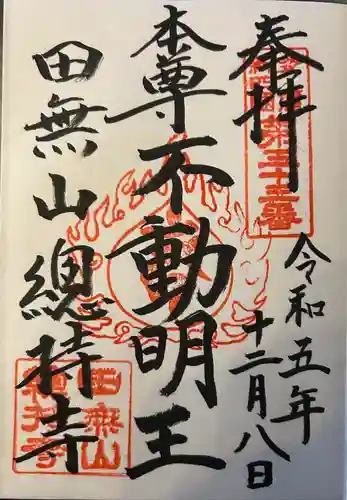 奉拝
令和五年
十二月八日
本尊不動明王
田無山總持寺
第三十二番
田無山
總持寺